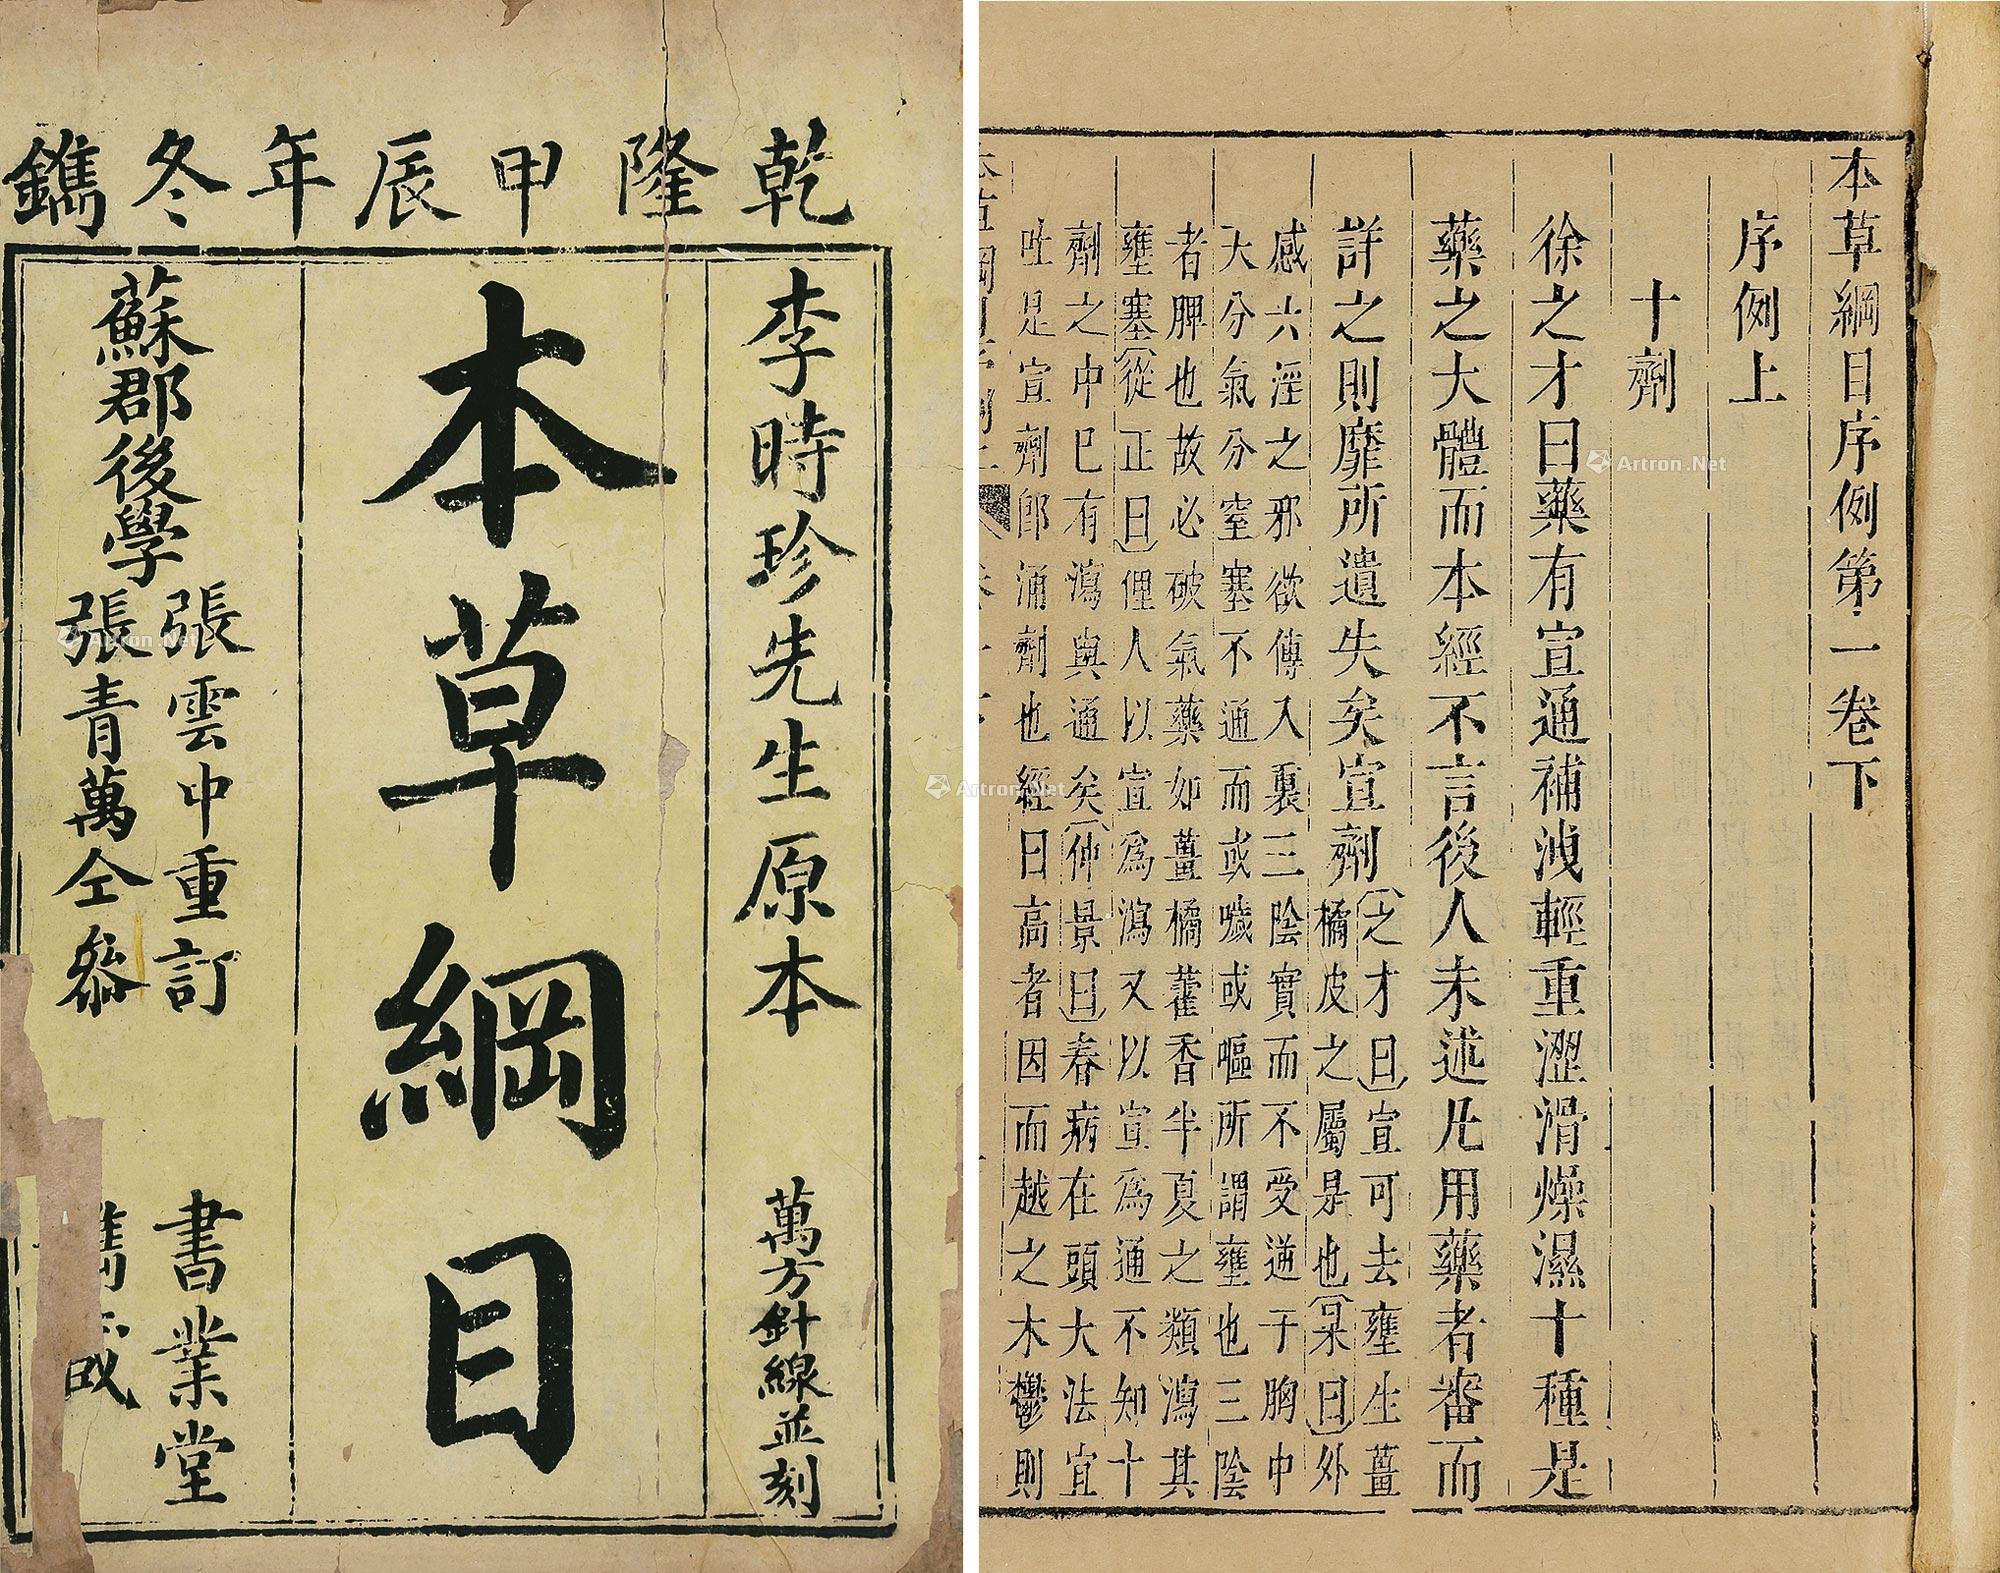 乾隆甲辰年冬鐫
李時珍先生原本
萬方針線並刻
本草綱目
蘇郡後學
張雲中重訂
張青萬仝叅
書業堂
本草綱目序例第一卷下
序例上
十劑
徐之才曰藥有宣通補洩輕重澀滑燥濕十種是
藥之大體而本經不言後人未述凡用藥者審而
詳之則靡所遺失矣宣劑
〔之才曰〕宣可去壅生薑
橘皮之屬是也〔杲曰〕外
感六淫之邪欲傳入裏三陰實而不受逆于胸中
天分氣分窒塞不通而或噦或嘔所謂壅也三陰
者脾也故必破氣藥如薑橘藿香半夏之類瀉其
壅塞〔從正曰〕俚人以宣爲瀉又以宣爲通不知十
劑之中已有瀉與通矣〔仲景曰〕春病在頭大法宜
吐是宣劑即涌劑也經曰高者因而越之木鬱則
Artron.Net
Artron.Net
Artron.Net